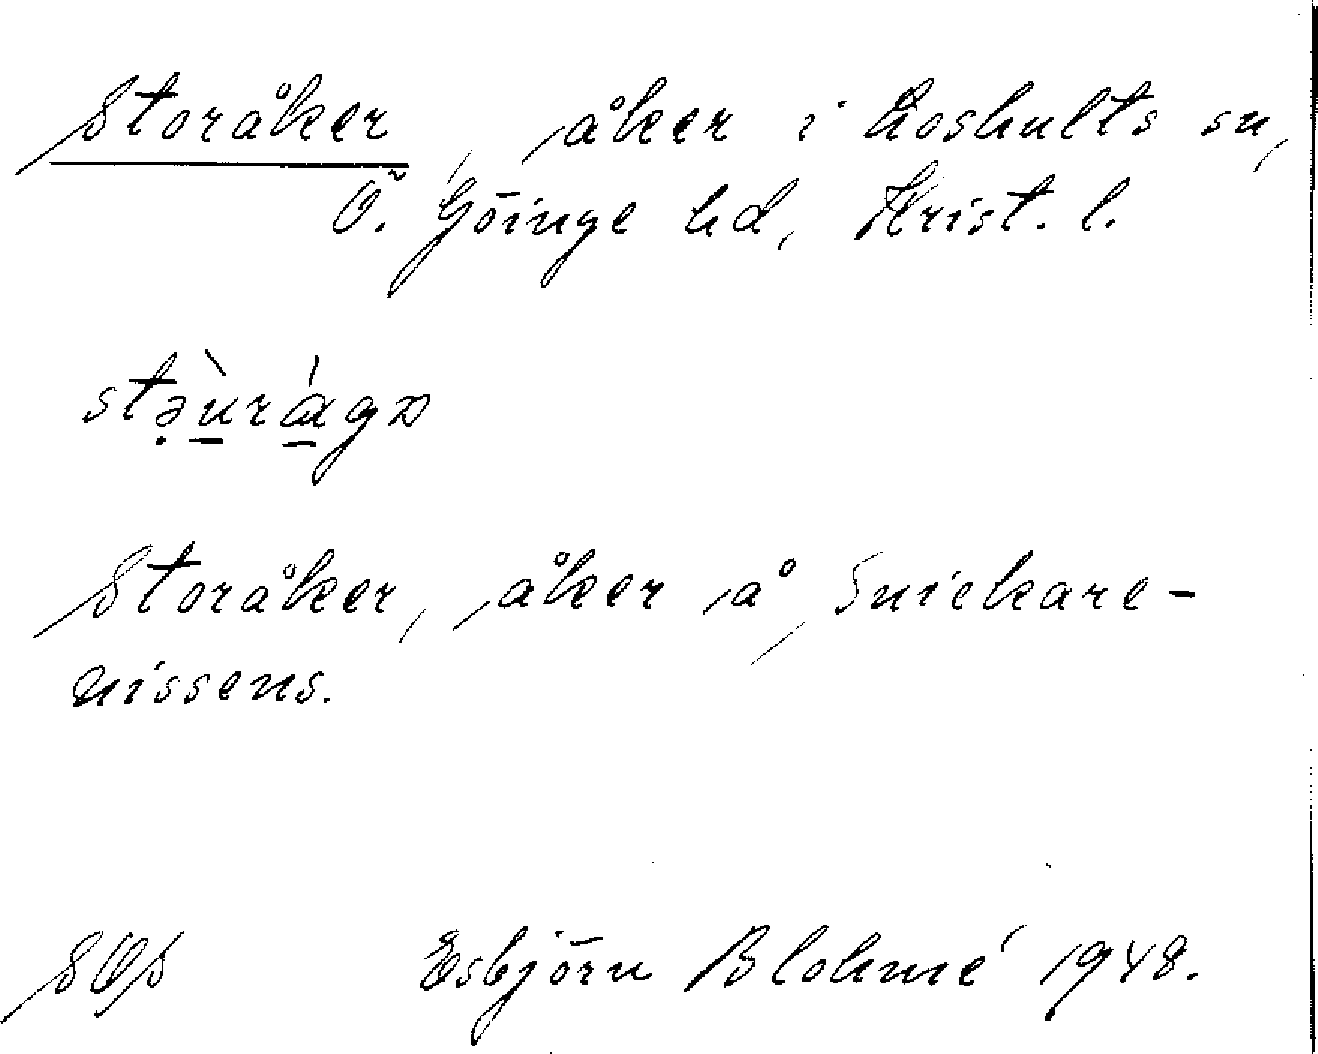 Storåker, åker i Loshults sn,
Ö. Göinge hd, Krist. l.
stə̣̀u̲rá̲gɒ
Storåker, åker å Snickare-
nissens.
SOS Esbjörn Blohmé 1948.